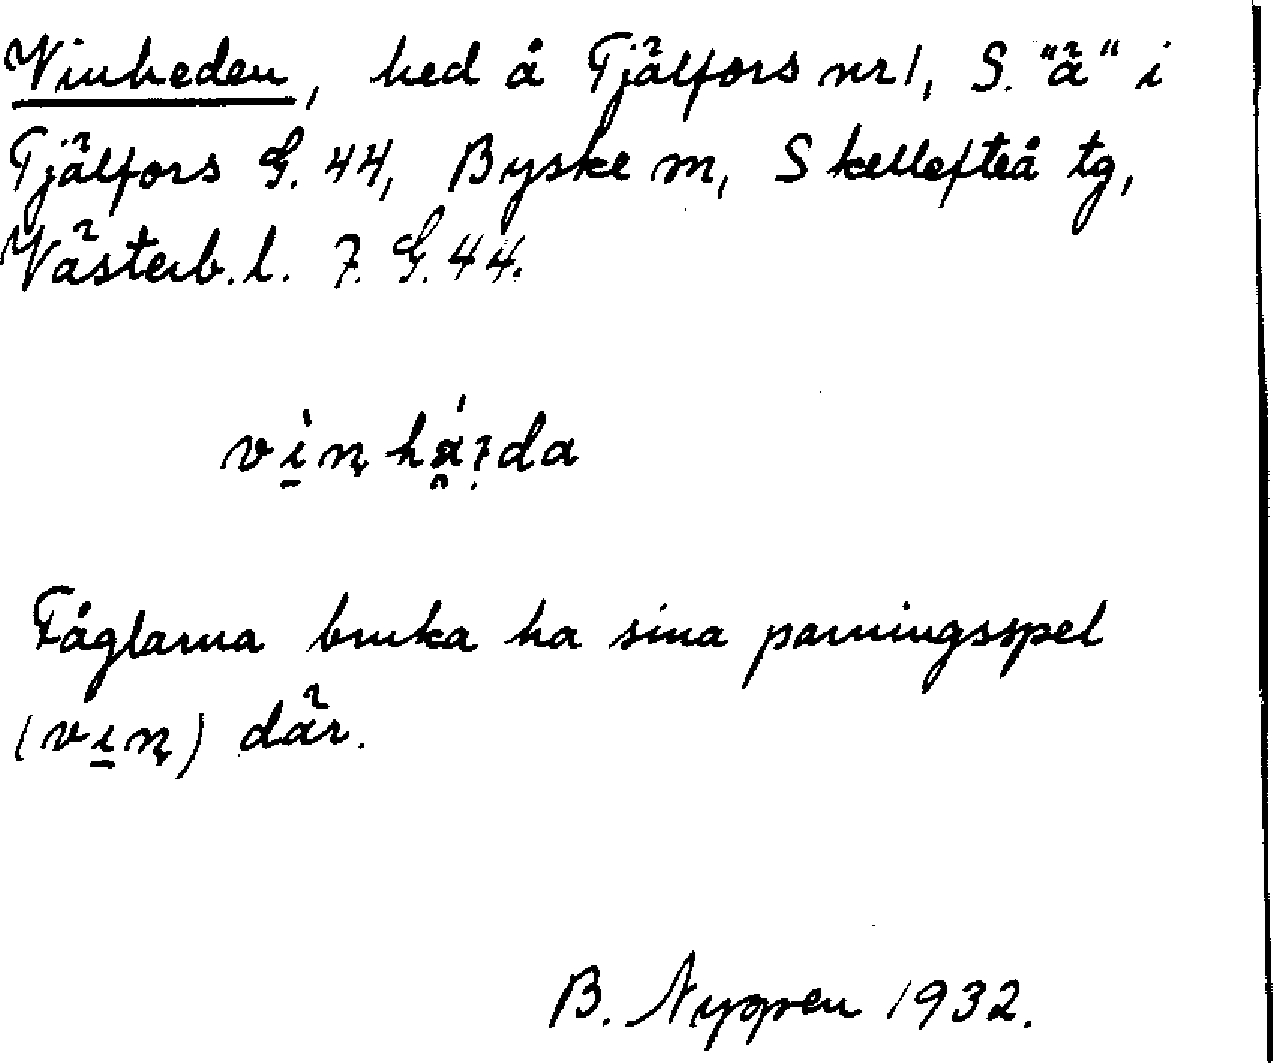 Vinheden, hed å Tjälfors nr 1, S. "ä" i
Tjälfors G. 44, Byske sn, Skellefteå tg,
Västerb. l. 7. G. 44.
Fåglarna bruka ha sina parningsspel
(vin) där.
B. Nygren 1932.